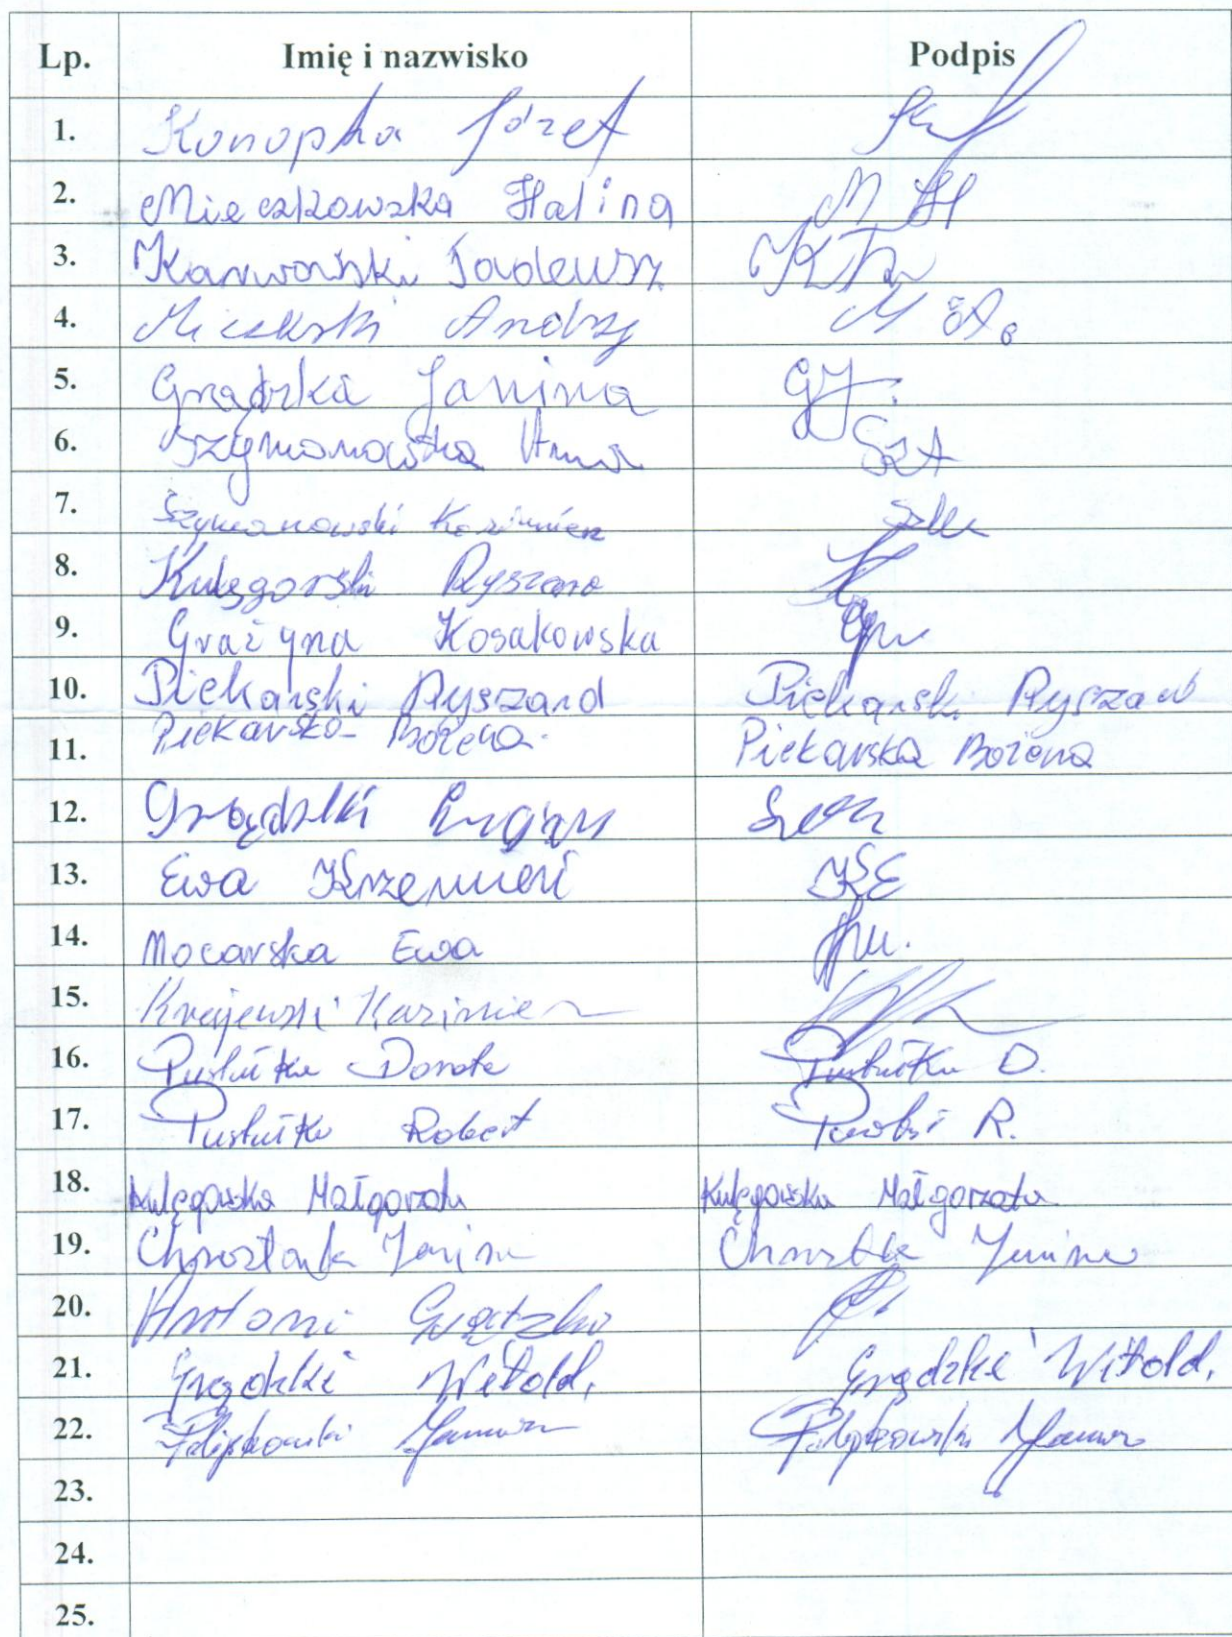 Lp. Imię i nazwisko Podpis
1. Konopka Józef
2. Mieczkowska Halina M H
3. Karwowski Tadeusz
4. Andrzej
5. Grądzka Janina GJ.
6. Szymanowska Anna SzA
7. Szymanowski Kazimierz
8. Kulęgowski Ryszard
9. Grażyna Kosakowska
10. Piekarski Ryszard Piekarski Ryszard
11. Piekarska Bożena Piekarska Bożena
12. Grądzki
13. Ewa Krzemień KE
14. Mocarska Ewa
15. Krajewski Kazimierz
16. Dorota D.
17. Robert R.
18. Kulęgowska Małgorzata Kulęgowska Małgorzata
19. Janina Janina
20. Antoni Grądzki
21. Grądzki Witold, Grądzki Witold,
22. Filipkowski Janusz Filipkowski Janusz
23.
24.
25.